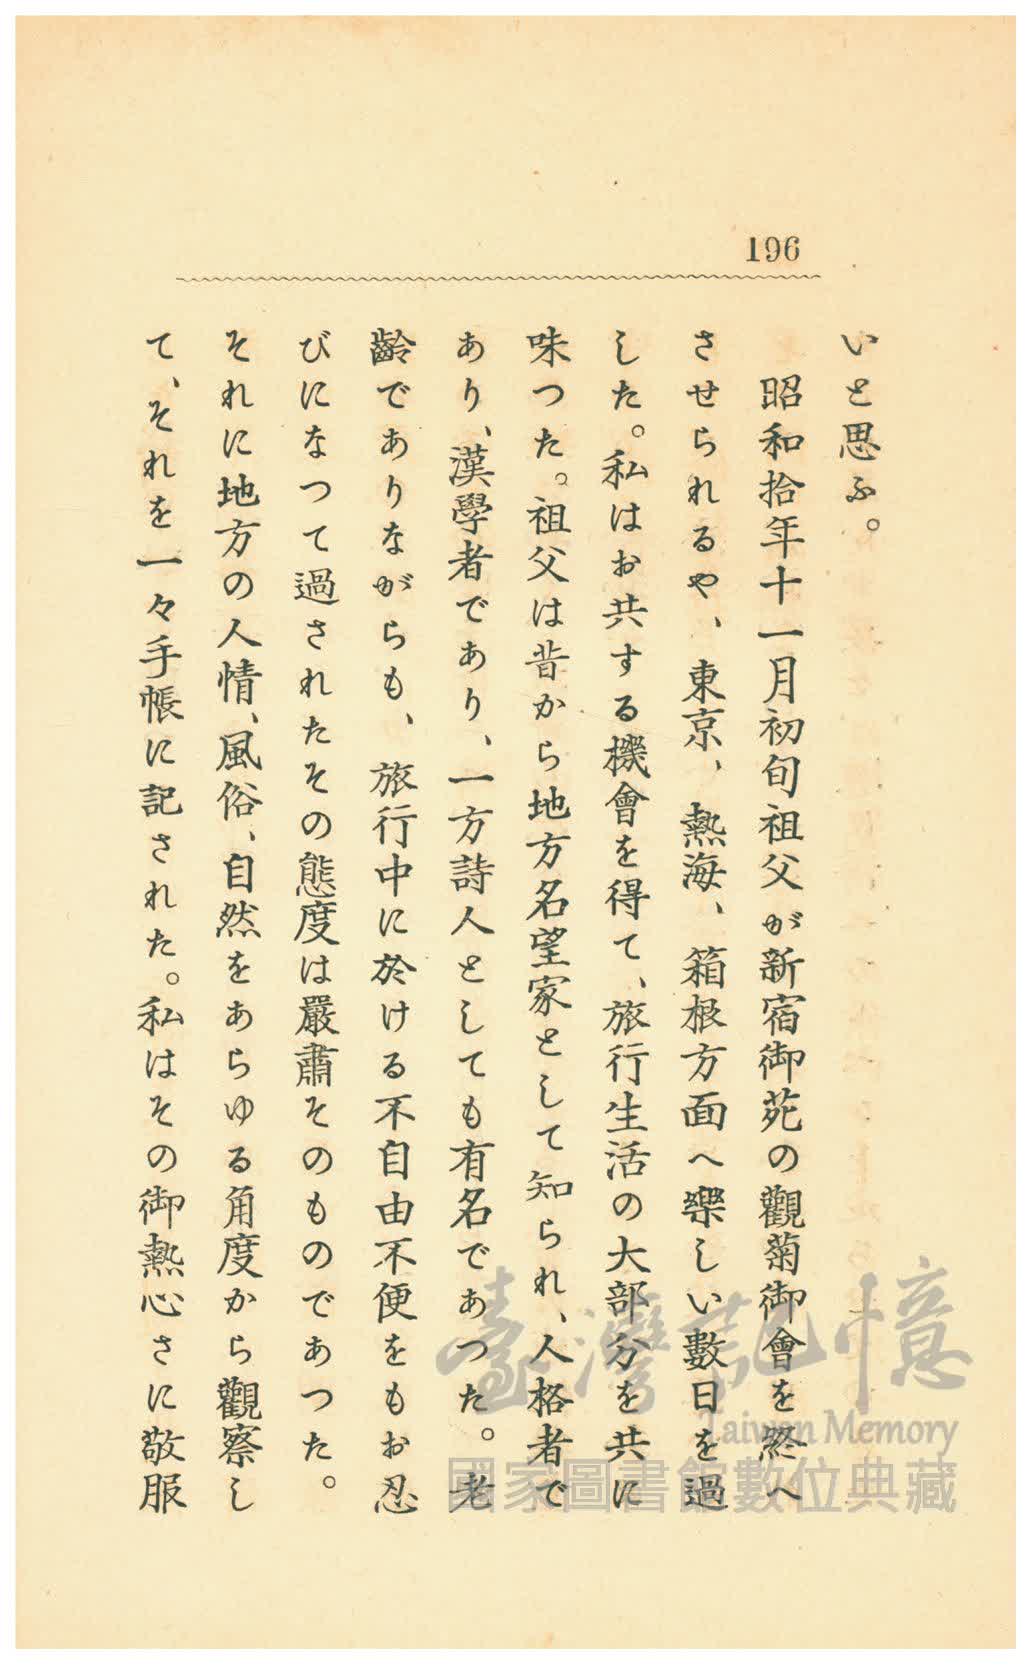 196
いと思ふ。
昭和拾年十一月初旬祖父が新宿御苑の觀菊御會を終へ
させられるや、東京、熱海、箱根方面へ樂しい數日を過
した。私はお共する機會を得て、旅行生活の大部分を共に
味つた。祖父は昔から地方名望家として知られ、人格者で
あり、漢學者であり、一方詩人としても有名であつた。老
齡でありながらも、旅行中に於ける不自由不便をもお忍
びになつて過されたその態度は嚴肅そのものであつた。
それに地方の人情、風俗、自然をあらゆる角度から觀察し
て、それを一々手帳に記された。私はその御熱心さに敬服
臺灣記憶
Taiwan Memory
國家圖書館數位典藏